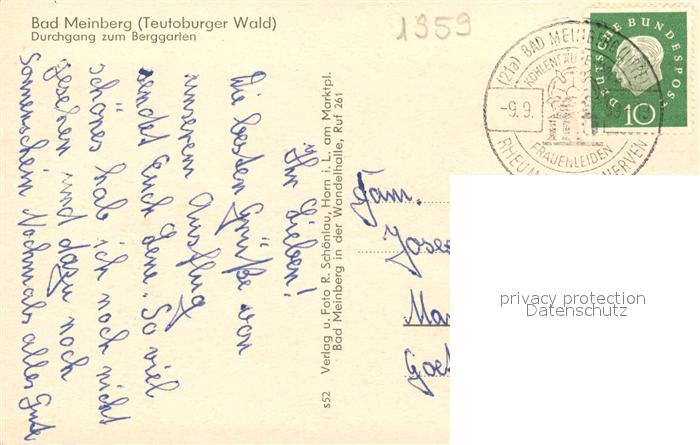 Bad Meinberg (Teutoburger Wald)
Durchgang zum Berggarten
1959
(21a) BAD MEINBERG (LIPPE)
KOHLENSÄURE
-9.9.
FRAUENLEIDEN
RHEUMA NERVEN
DEUTSCHE BUNDESPOST
10
Ihr Lieben!
Die besten Grüße von
unserem Ausflug
sendet Euch Lene. So viel
schönes hab ich noch nicht
gesehen und dazu noch
Sonnenschein Nochmals alles Gute
s52 Verlag u. Foto R. Schönlau, Horn i. L. am Marktpl.
Bad Meinberg in der Wandelhalle, Ruf 261
Fam.
Jose
Ma
Goe
privacy protection
Datenschutz